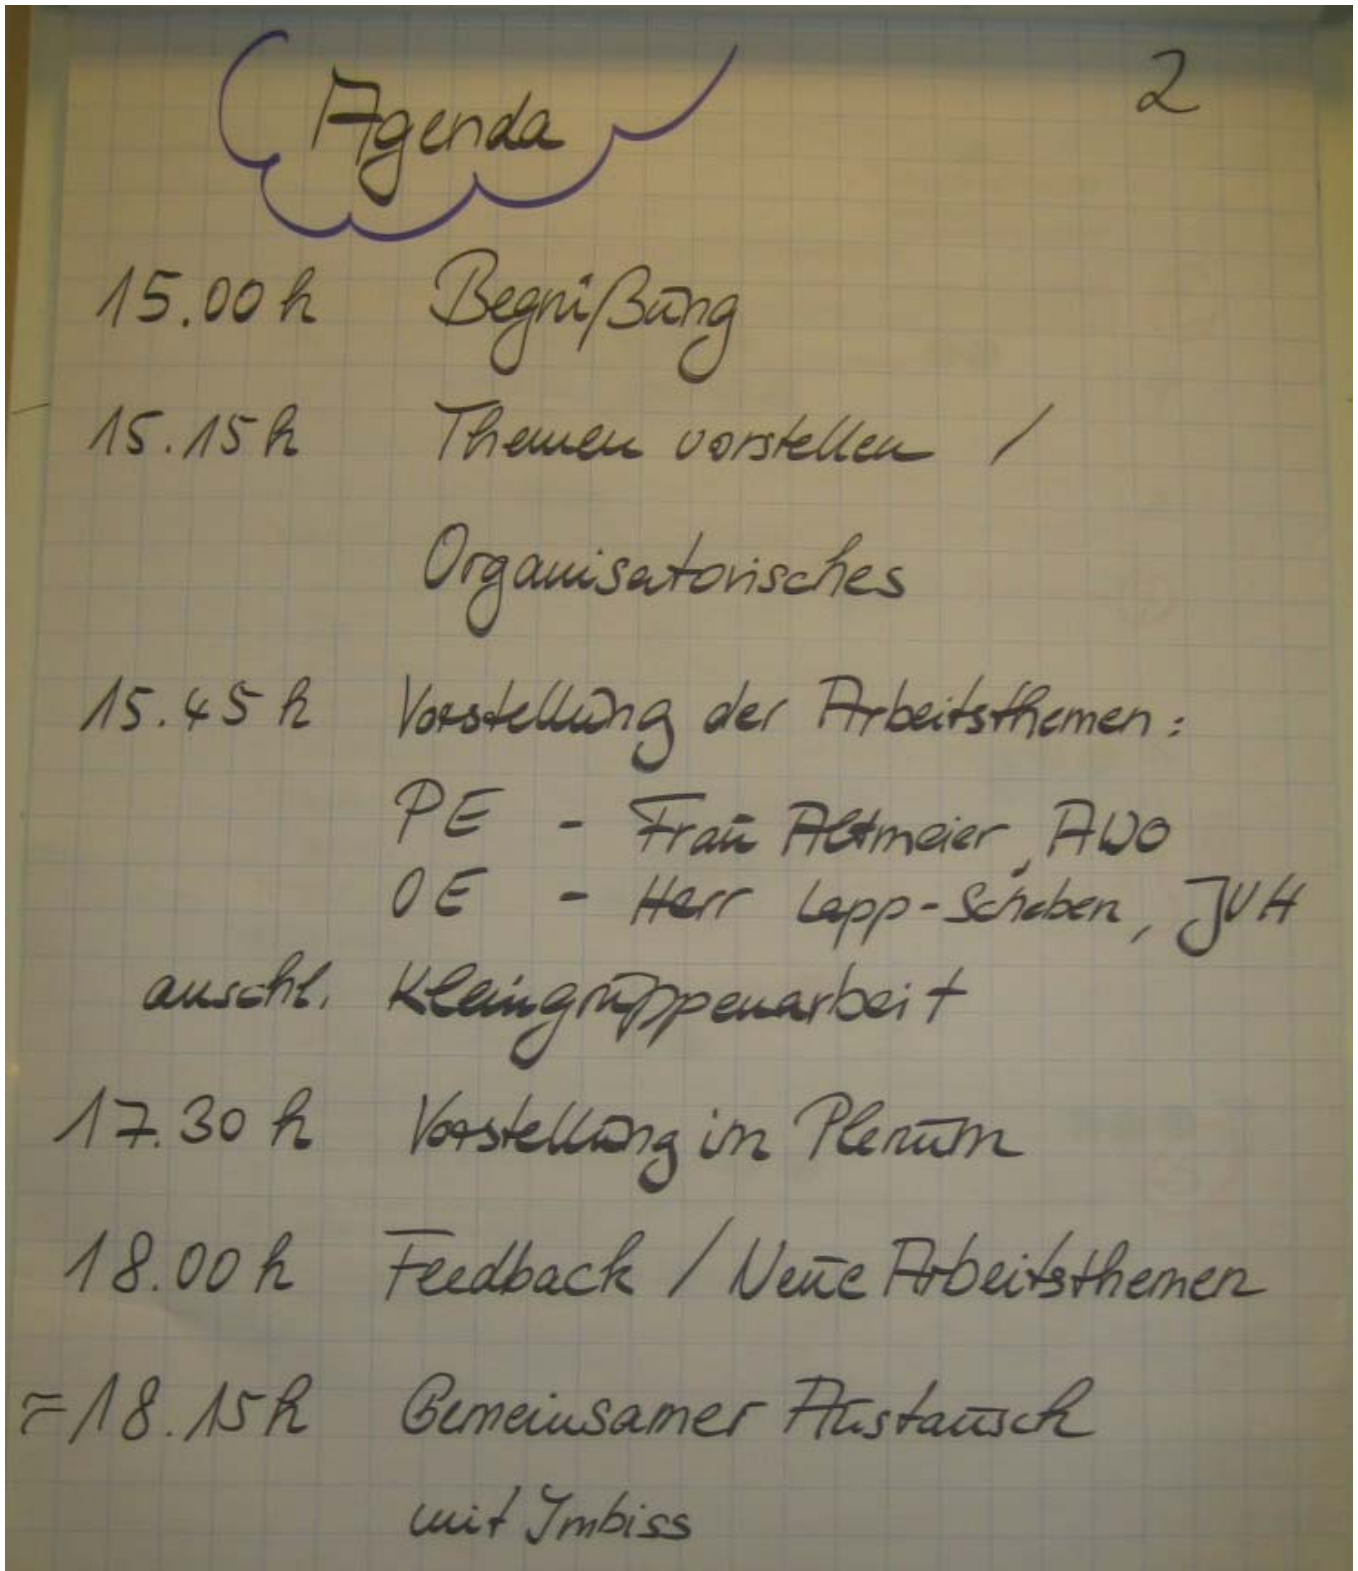 Agenda
2
15.00 h Begrüßung
15.15 h Themen vorstellen /
Organisatorisches
15.45 h Vorstellung der Arbeitsthemen:
PE - Frau Altmeier, AWO
OE - Herr Lapp-Scheben, JUH
anschl. Kleingruppenarbeit
17.30 h Vorstellung im Plenum
18.00 h Feedback / Neue Arbeitsthemen
≈18.15 h Gemeinsamer Austausch
mit Imbiss